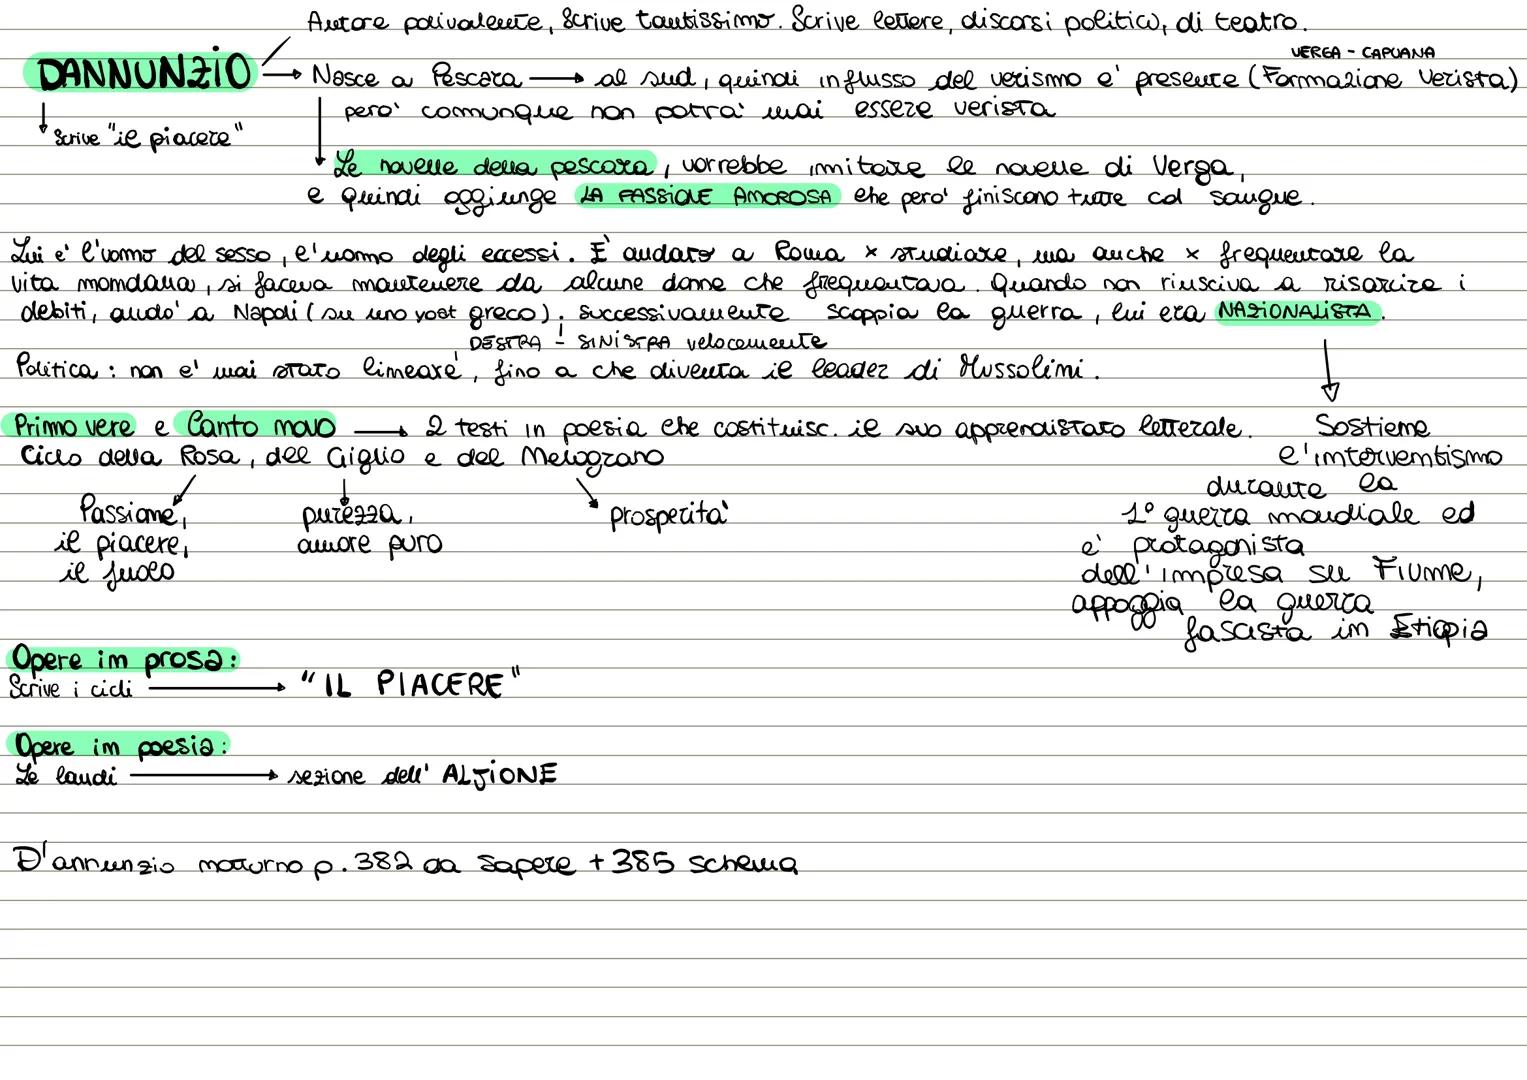 Autore polivalente, Scrive tantissimo. Scrive lettere, discorsi politici, di teatro.
VERGA - CAPUANA
DANNUNZIO → Nasce a Pescara → al sud, quindi influsso del verismo e' presente (Formazione Verista)
pero' comunque non potra' mai essere verista
Scrive "il piacere"
Le novelle della pescara, vorrebbe imitare le novelle di Verga,
e quindi aggiunge LA PASSIONE AMOROSA che pero' finiscono tutte col sangue.
Lui e' l'uomo del sesso, l'uomo degli eccessi. È andato a Roma x studiare, ma anche x frequentare la
vita mondana, si faceva mantenere da alcune donne che frequentava. Quando non riusciva a risarcire i
debiti, ando' a Napoli (su uno yost greco). Successivamente scoppia la guerra, lui era NAZIONALISTA.
DESTRA - SINISTRA velocemente
Politica: non e' mai stato lineare, fino a che diventa il leader di Mussolini.
Primo vere e Canto novo → 2 testi in poesia che costituisc. il suo apprendistato letterale.
Ciclo della Rosa, del Giglio e del Melograno
Passione,
il piacere,
il fuoco
purezza,
amore puro
prosperita'
Sostiene
l'interventismo
durante la
1° guerra mondiale ed
e' protagonista
dell'impresa su Fiume,
appoggia la guerra
fascista in Etiopia
Opere in prosa:
Scrive i cicli → "IL PIACERE"
Opere in poesia:
Le laudi → sezione dell'ALJIONE
D'annunzio notturno p. 382 da sapere + 385 schema